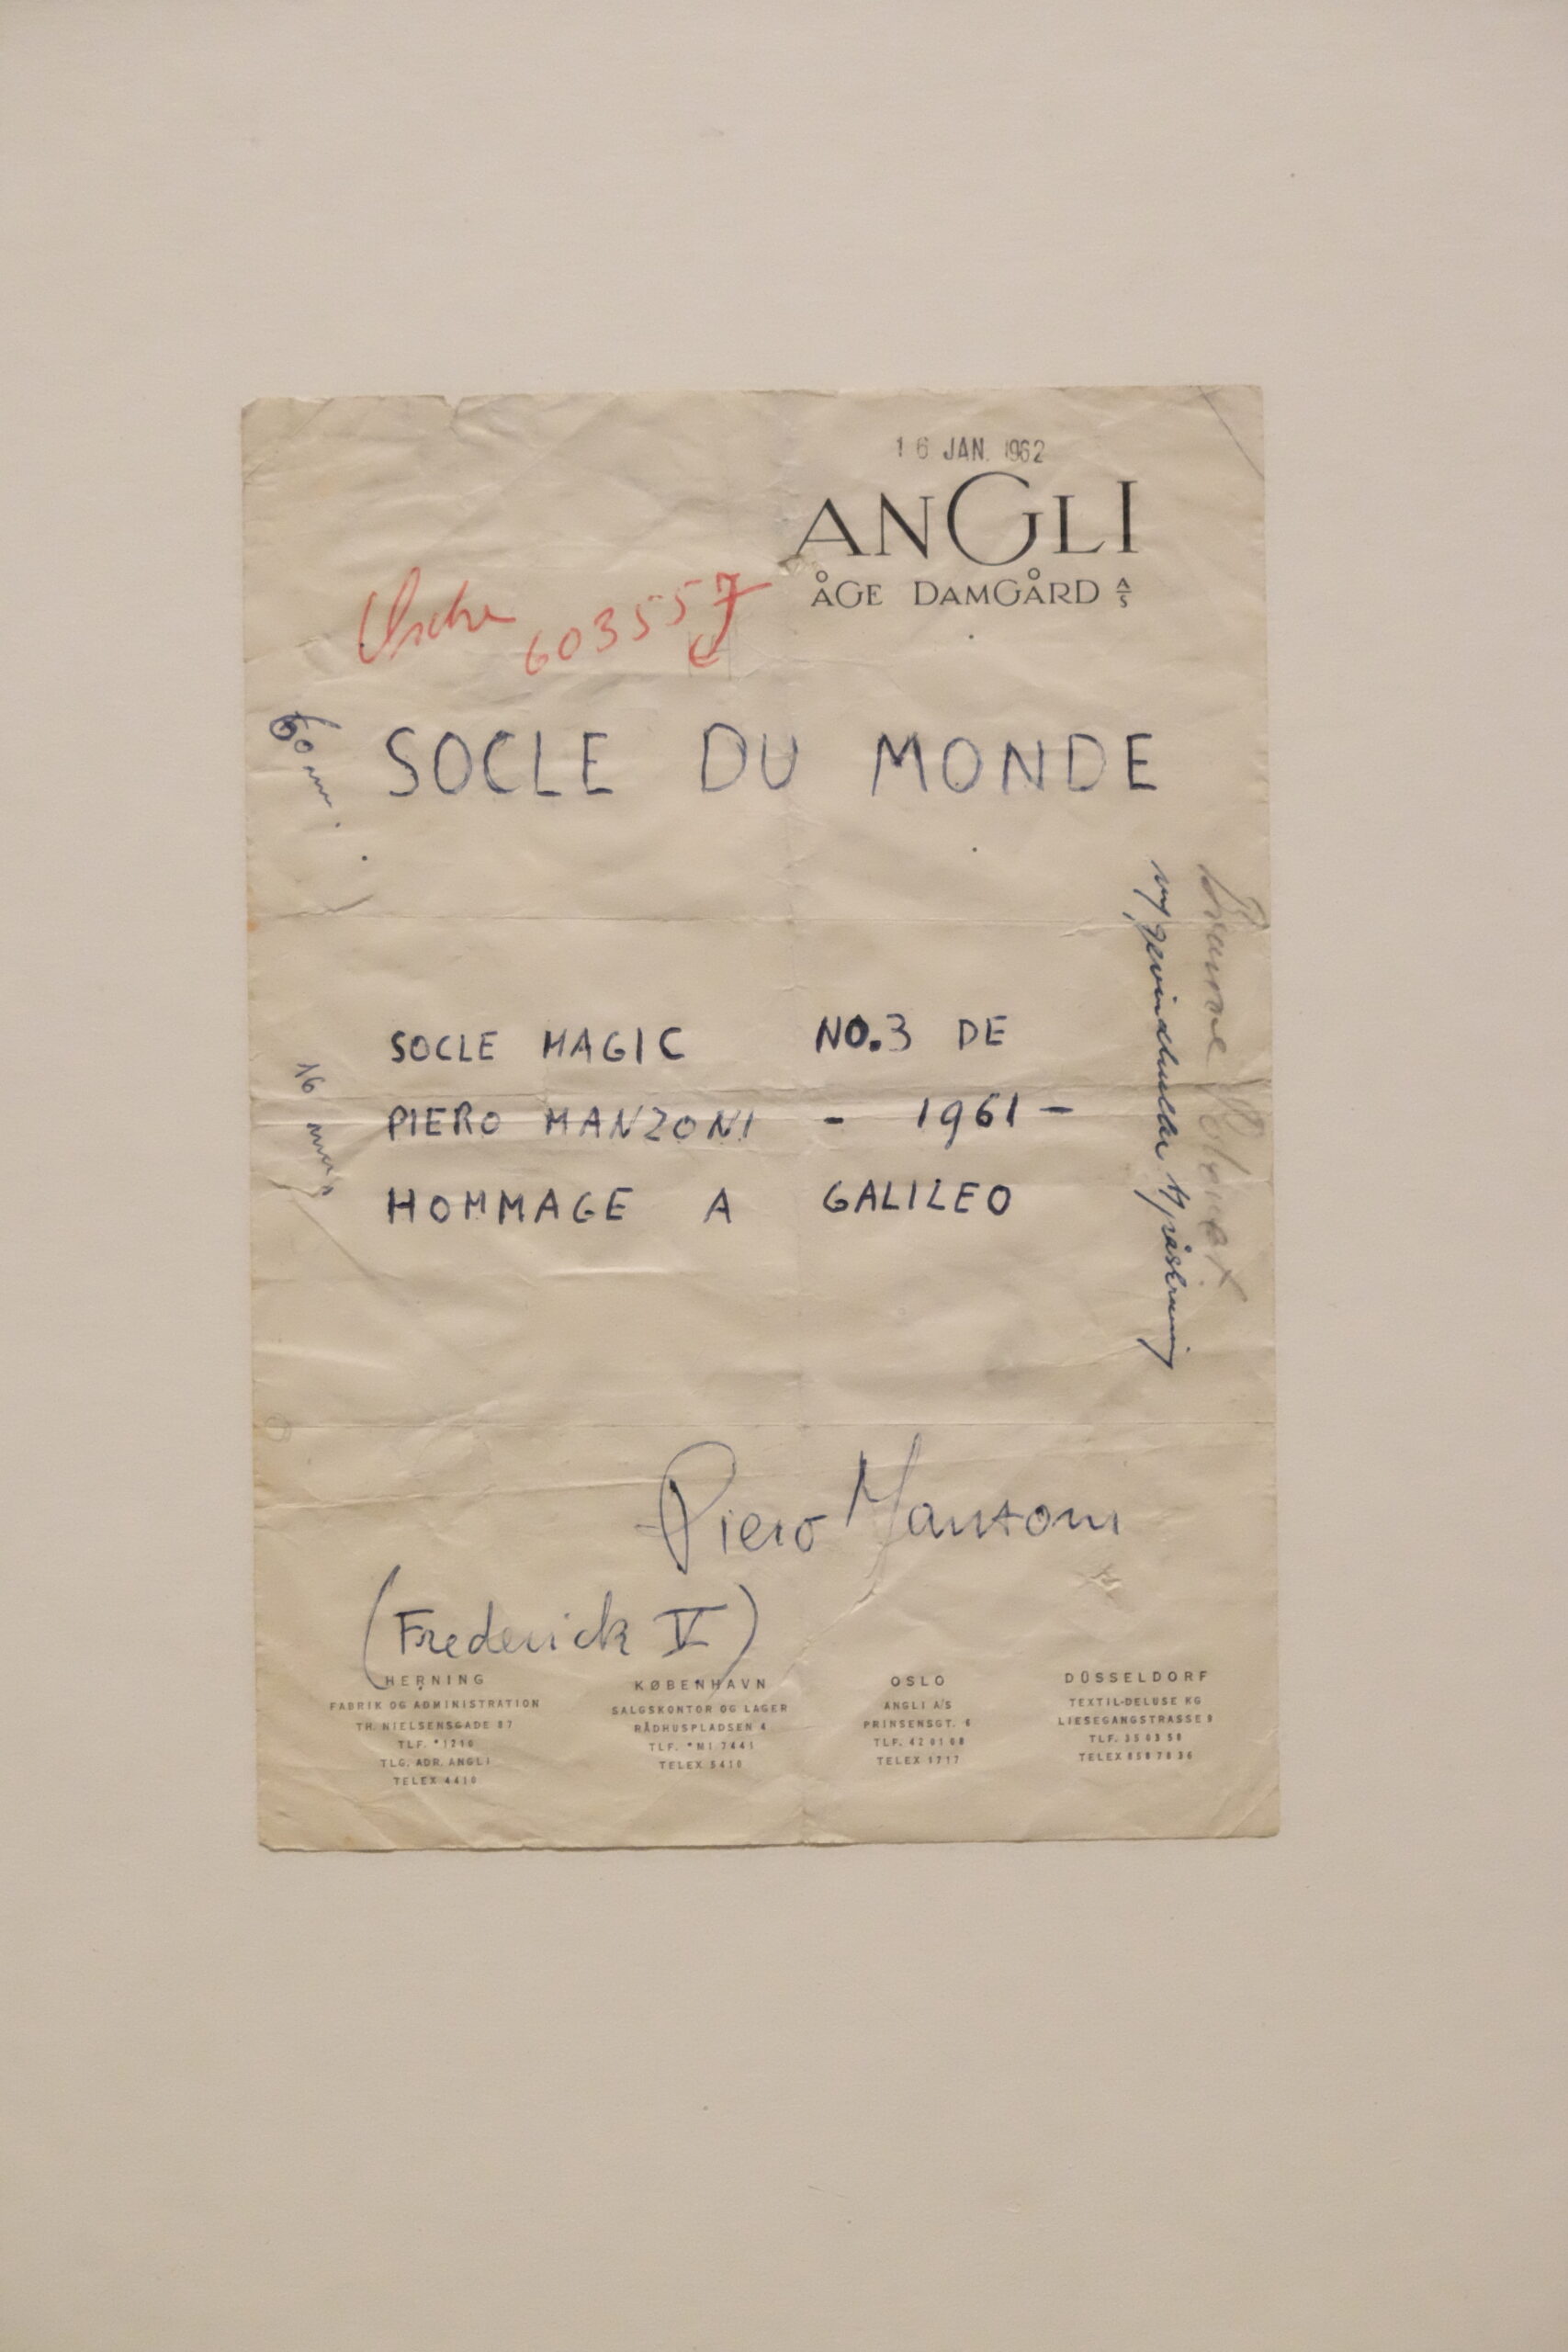 16 JAN. 1962
ANGLI
ÅGE DAMGÅRD A/S
603557
60 mm
SOCLE DU MONDE
SOCLE MAGIC NO.3 DE
PIERO MANZONI - 1961 -
HOMMAGE A GALILEO
16 mm
Piero Manzoni
(Frederick IV)
HERNING
FABRIK OG ADMINISTRATION
TH. NIELSENSGADE 87
TLF. *1210
TLG. ADR. ANGLI
TELEX 4410
KØBENHAVN
SALGSKONTOR OG LAGER
RÅDHUSPLADSEN 4
TLF. *MI 7441
TELEX 5410
OSLO
ANGLI A/S
PRINSENSGT. 6
TLF. 42 01 08
TELEX 1717
DÜSSELDORF
TEXTIL-DELUSE KG
LIESEGANGSTRASSE 9
TLF. 35 03 58
TELEX 858 78 36